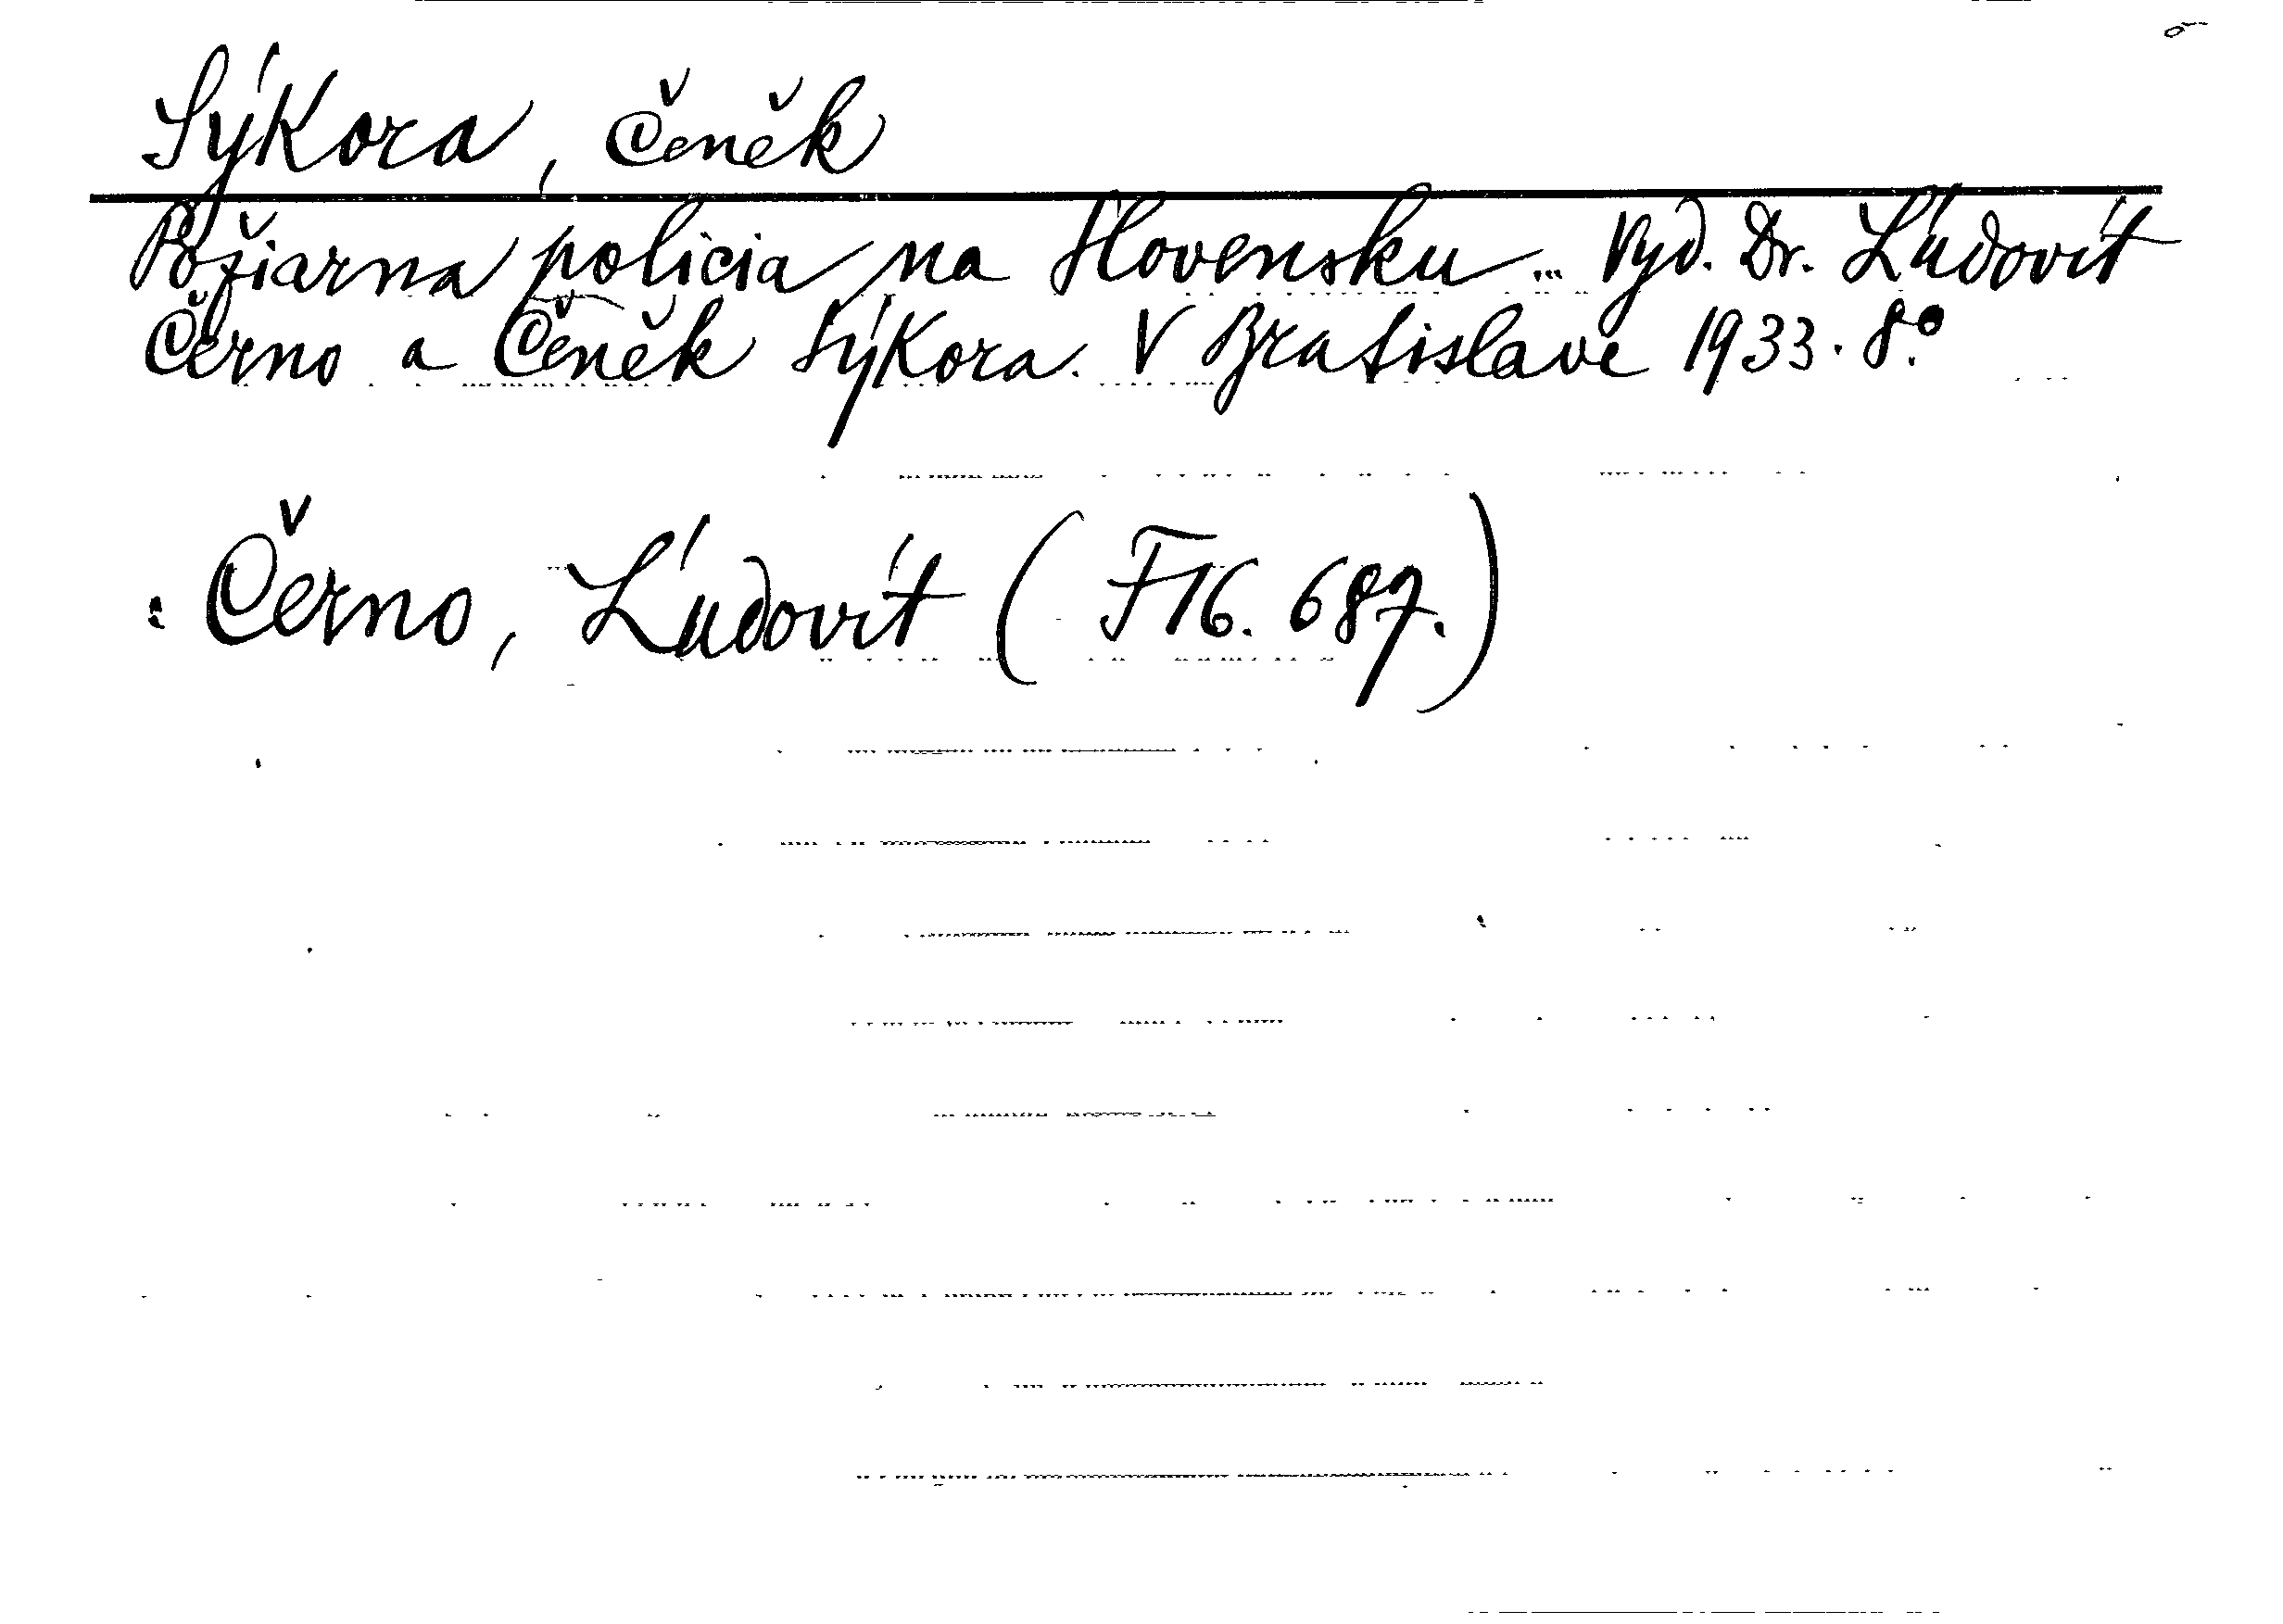 Sýkora, Čeněk
Požiarna polícia na Slovensku... Vyd. Dr. Ľudovít
Černo a Čeněk Sýkora. V Bratislave 1933. 8°.
: Černo, Ľudovít (F 16. 687.)